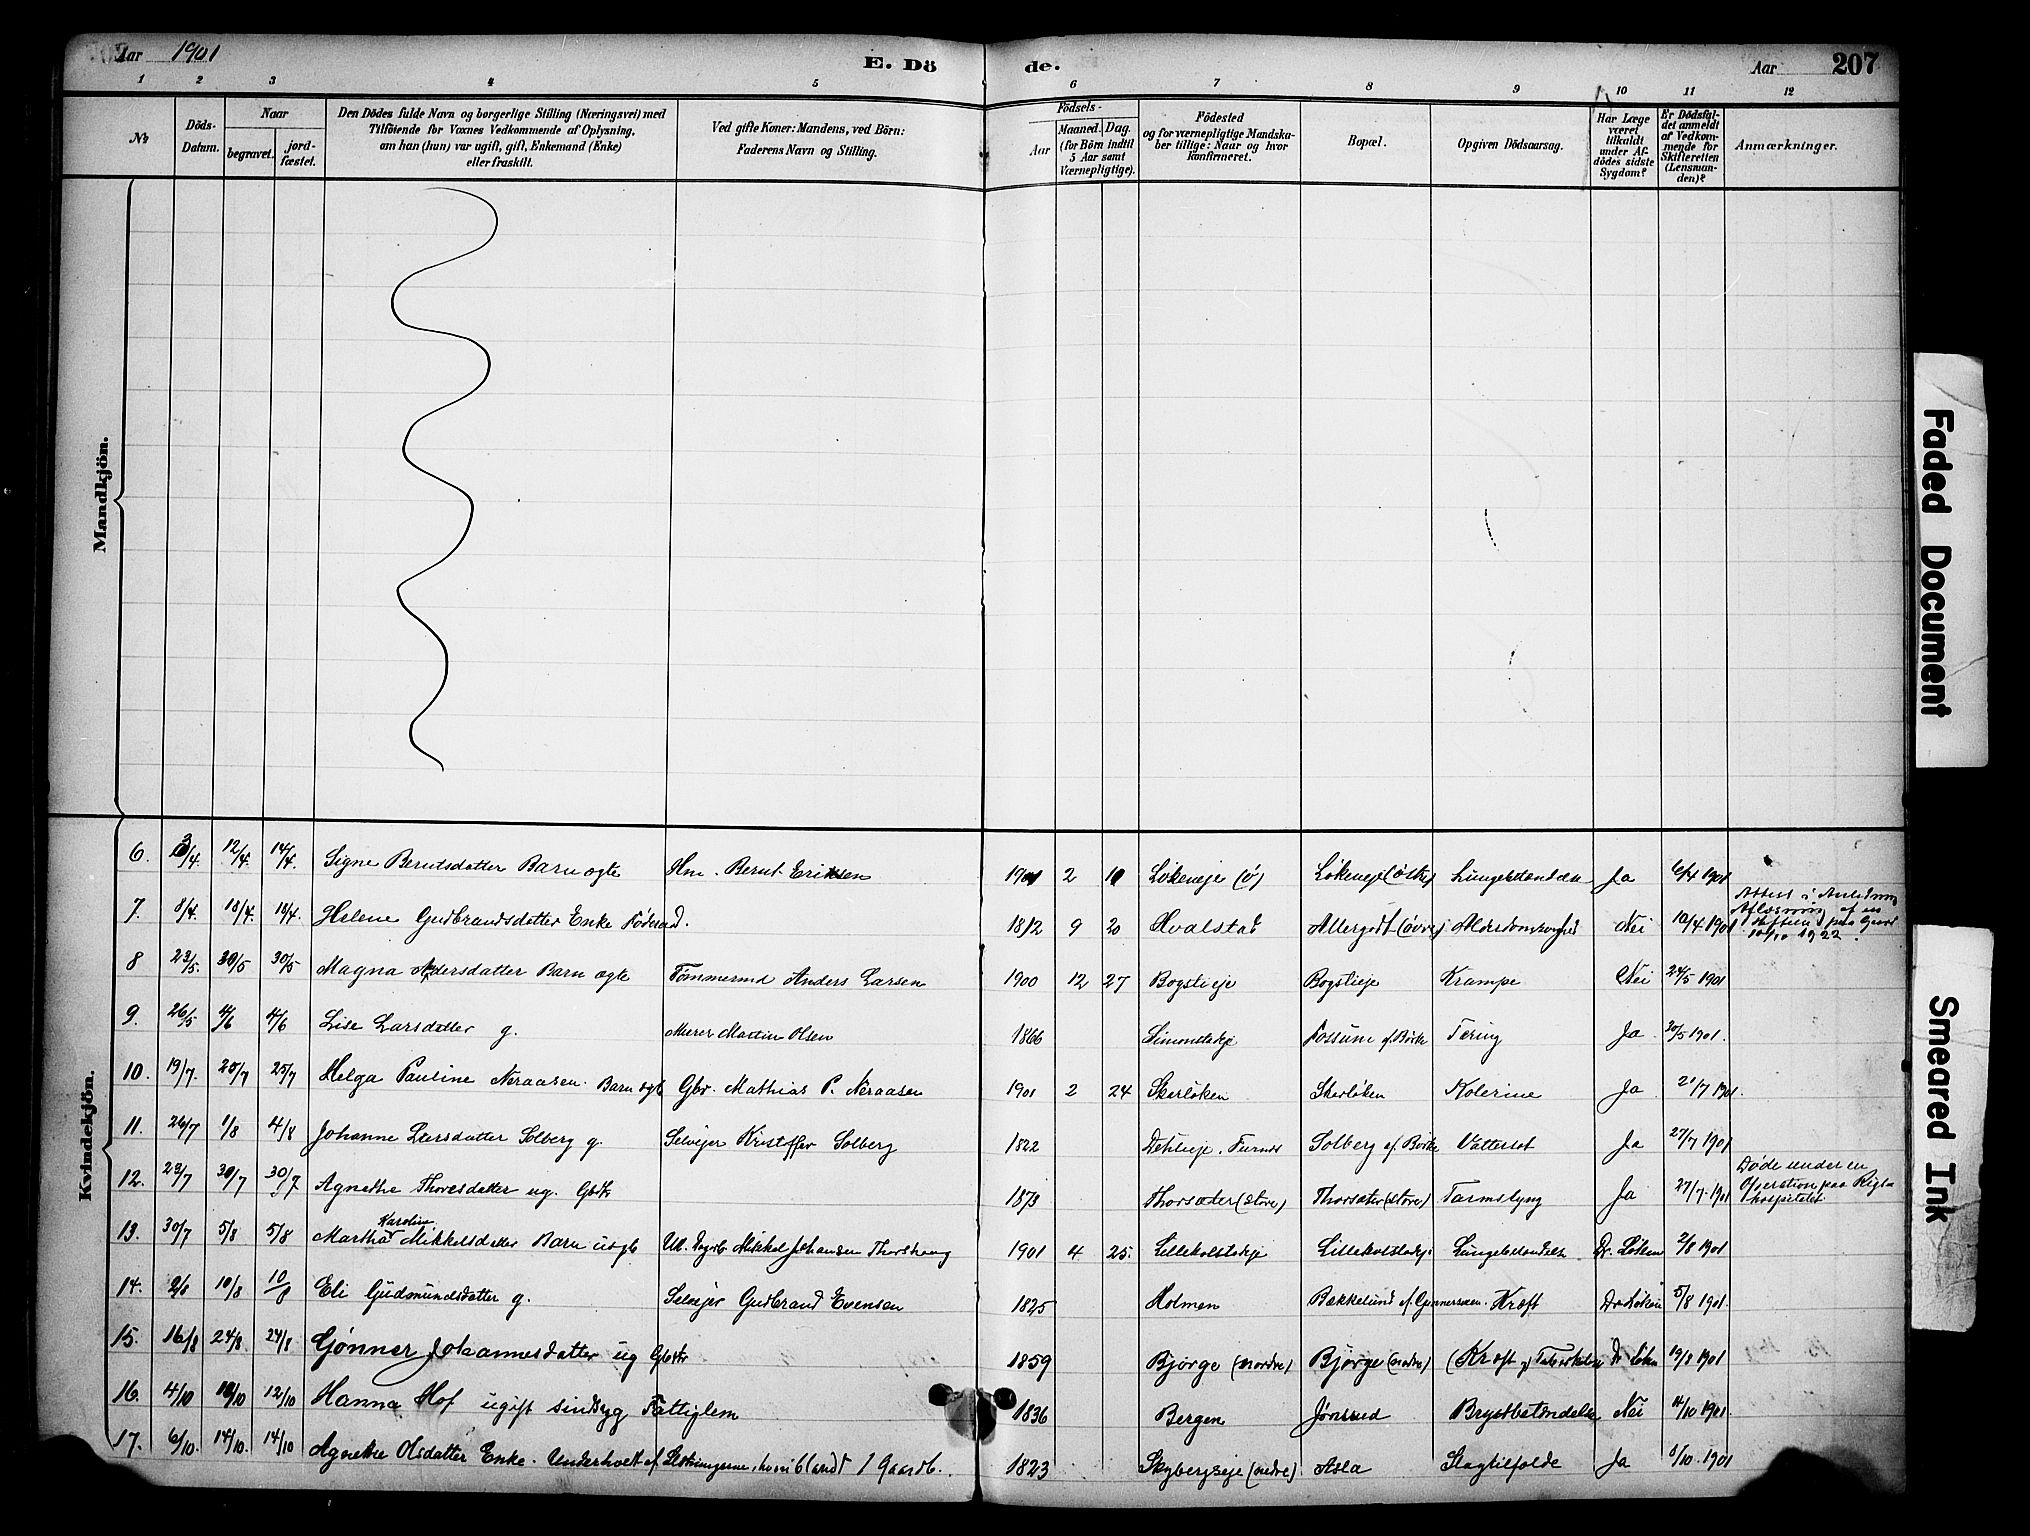 Aar 1901
E. Dö de.
Aar 207
1 2 3 4 5 6 7 8 9 10 11 12
No
Döds-Datum.
Naar
begravet.
jord-fæstet.
Den Dödes fulde Navn og borgerlige Stilling (Næringsvei) med
Tilföiende for Voxnes Vedkommende af Oplysning,
om han (hun) var ugift, gift, Enkemand (Enke)
eller fraskilt.
Ved gifte Koner: Mandens, ved Börn:
Faderens Navn og Stilling.
Födsels-
Aar
Maaned. Dag.
(for Börn indtil
5 Aar samt
Værnepligtige).
Födested
og for værnepligtige Mandska-
ber tillige: Naar og hvor
konfirmeret.
Bopæl.
Opgiven Dödsaarsag.
Har Læge
været
tilkaldt
under Af-
dödes sidste
Sygdom?
Er Dödsfal-
det anmeldt
af Vedkom-
mende for
Skifteretten
(Lensman-
den)?
Anmærkninger.
Mandkjön.
Kvindekjön.
6. 3/4. 12/4. 14/4. Signe Berntsdatter Barn ægte Hm. Bernt Eriksen 1901 2 10 Løkeneje (ø) Løkeneje (østre) Lungebetændelse Ja 6/4 1901
7. 8/4. 18/4. 18/4. Helene Gudbrandsdatter Enke Føderaad. 1812 9 20 Hvalstad Allergodt (øvre) Alderdomssvaghed Nei 10/4 1901
Attest i Anledning
Afløsning af en
Heftelse paa Gaard
10/10 1922.
8 23/5. 30/5 30/5 Magna Andersdatter Barn ægte Tømmermd Anders Larsen 1900 12 27 Bogstieje Bogstieje Krampe Nei 24/5 1901
9. 26/5 4/6 4/6 Lise Larsdatter g. Murer Martin Olsen 1866 Simenstadeje Fossum af Birke Tæring Ja 30/5 1901.
10. 19/7. 25/7 25/7 Helga Pauline Neraasen. Barn ægte Gbr. Mathias P. Neraasen 1901 2 24 Skerløken Skerløken Kolerine Ja 21/7 1901.
11. 26/7 1/8 4/8 Johanne Larsdatter Solberg g. Selvejer Kristoffer Solberg 1822 Furnes Solberg af Birke Vattersot Ja 27/7 1901
12. 23/7 30/7 30/7 Agnethe Thoresdatter ug. Gbdtr 1873 Thorsæter (store) Thorsæter (store) Tarmslyng Ja 27/7. 1901
Døde under en
Operation paa Rigs-
hospitalet
13. 30/7 5/8 5/8 Martha Karoline Mikkelsdatter Barn uægte Ul. Dagarb. Mikkel Johansen Thorshaug 1901 4 25. Lillekolstadeje Lillekolstadeje Lungebetændelse Dr. Løken 2/8 1901
14. 2/8 10/8 10/8 Eli Gudmundsdatter g. Selvejer Gudbrand Evensen 1825 Holmen Bækkelund af Gunnersveen Kræft Dr Løken 5/8 1901.
15. 16/8 24/8. 24/8 Gønner Johannesdatter ug Gbdtr 1859 Bjørge (nordre) Bjørge (nedre) (Kræft) og Tuberkulose Dr Løken 19/8 1901
16. 4/10 12/10 12/10 Hanna Hof ugift sindsyg Fattiglem 1836 Bergen Jønsrud Brystbetændelse Nei 14/10 1901
17. 6/10. 14/10. 14/10 Agnethe Olsdatter Enke. Underholdt af Slægtningerne, hvoriblandt 1 Gaardb. 1823 Skybergseje (nedre) Asla Slagtilfælde Ja 8/10. 1901
Faded Document
Smeared Ink